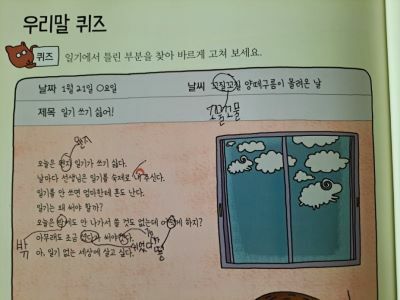 우리말 퀴즈
퀴즈 일기에서 틀린 부분을 찾아 바르게 고쳐 보세요.
날짜 1월 21일 ○요일 날씨 꼬질꼬질 양떼구름이 몰려온 날
꼬물꼬물
제목 일기 쓰기 싫어!
왠지
오늘은 왠지 일기가 쓰기 싫다.
날마다 선생님은 일기를 숙제로 내 주신다.
일기를 안 쓰면 엄마한테 혼도 난다.
일기는 왜 써야 할까?
오늘은 밖에도 안 나가서 쓸 것도 없는데 하지?
아무래도 조금 써야
아, 일기 없는 세상에 살고 싶다.